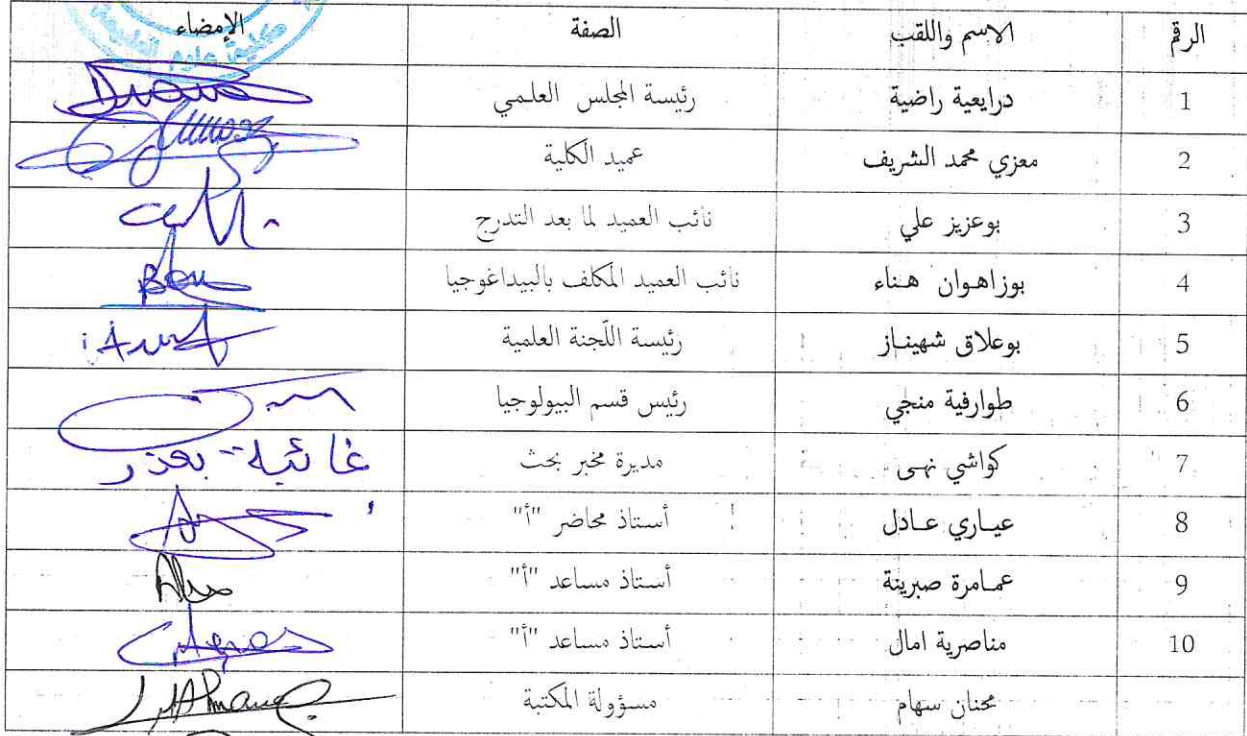 الرقم الاسم واللقب الصفة الإمضاء
1 درايعية راضية رئيسة المجلس العلمي
2 معزي محمد الشريف عميد الكلية
3 بوعزيز علي نائب العميد لما بعد التدرج
4 بوزاهوان هناء نائب العميد المكلف بالبيداغوجيا
5 بوعلاق شهيناز رئيسة اللّجنة العلمية
6 طوارفية منجي رئيس قسم البيولوجيا
7 كواشي نهى مديرة مخبر بحث غائبة بعذر
8 عياري عادل أستاذ محاضر "أ"
9 عمامرة صبرينة أستاذ مساعد "أ"
10 مناصرية امال أستاذ مساعد "أ"
محنان سهام مسؤولة المكتبة